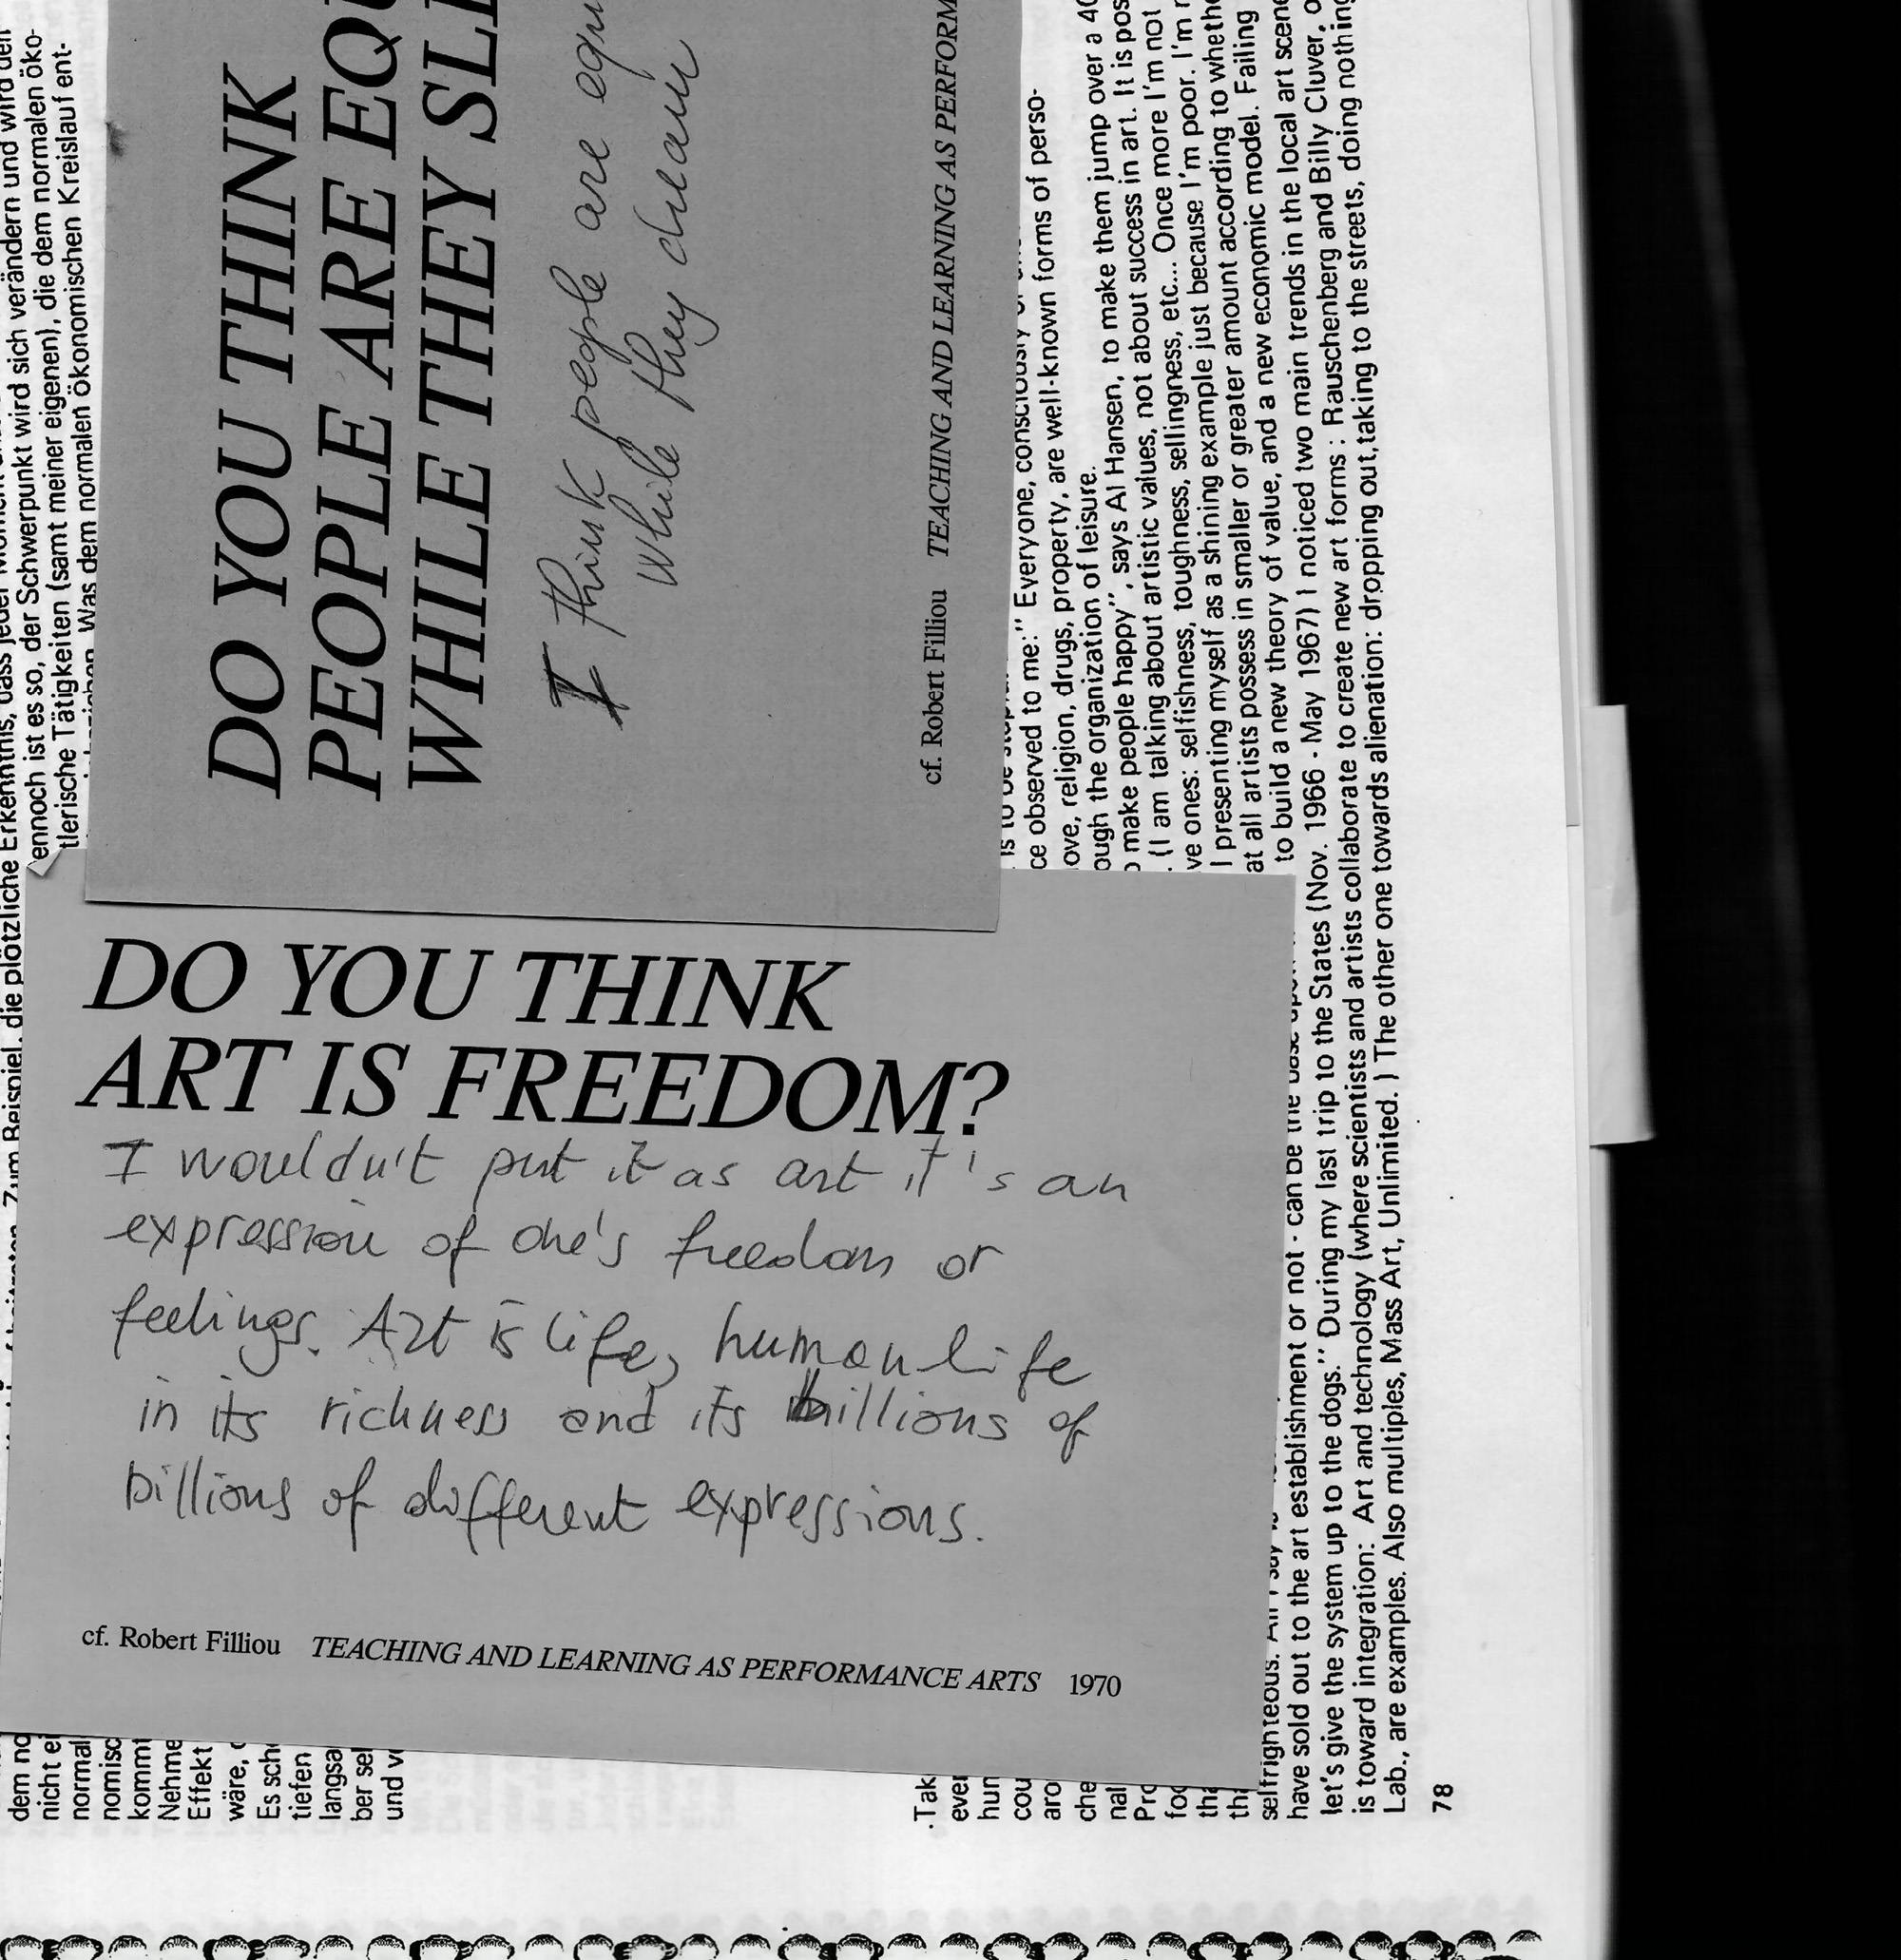 DO YOU THINK
ART IS FREEDOM?
I wouldn't put it as art it's an
expression of one's freedom or
feelings. Art is life, human life
in its richness and its billions of
billions of different expressions.
cf. Robert Filliou TEACHING AND LEARNING AS PERFORMANCE ARTS 1970
DO YOU THINK
PEOPLE ARE EQU
WHILE THEY SLE
I think people are equ
while they dream
cf. Robert Filliou TEACHING AND LEARNING AS PERFORM
ennoch ist es so, der Schwerpunkt wird sich verändern und wird den
tlerische Tätigkeiten (samt meiner eigenen), die dem normalen öko-
Was dem normalen ökonomischen Kreislauf ent-
die plötzliche Erkenntnis, dass jeder
Zum Beispiel,
dem no
nicht ei
normal
nomisc
kommt
Nehme
Effekt
wäre,
Es sche
tiefen
langsa
ber sel
und ve
ce observed to me:" Everyone, consciously
ove, religion, drugs, property, are well-known forms of perso-
ough the organization of leisure.
make people happy", says Al Hansen, to make them jump over a 40
(I am talking about artistic values, not about success in art. It is pos
ve ones: selfishness, toughness, sellingness, etc... Once more I'm not
I presenting myself as a shining example just because I'm poor. I'm
at all artists possess in smaller or greater amount according to wheth
to build a new theory of value, and a new economic model. Failing
.Tak
ever
hun
cou
aro
che
nal
Pro
foo
tha
th
selfrighteous. All I say is
have sold out to the art establishment or not - can be the base upon
let's give the system up to the dogs." During my last trip to the States (Nov. 1966 - May 1967) I noticed two main trends in the local art scene
is toward integration: Art and technology (where scientists and artists collaborate to create new art forms : Rauschenberg and Billy Cluver, o
Lab., are examples. Also multiples, Mass Art, Unlimited. ) The other one towards alienation: dropping out, taking to the streets, doing nothing
78